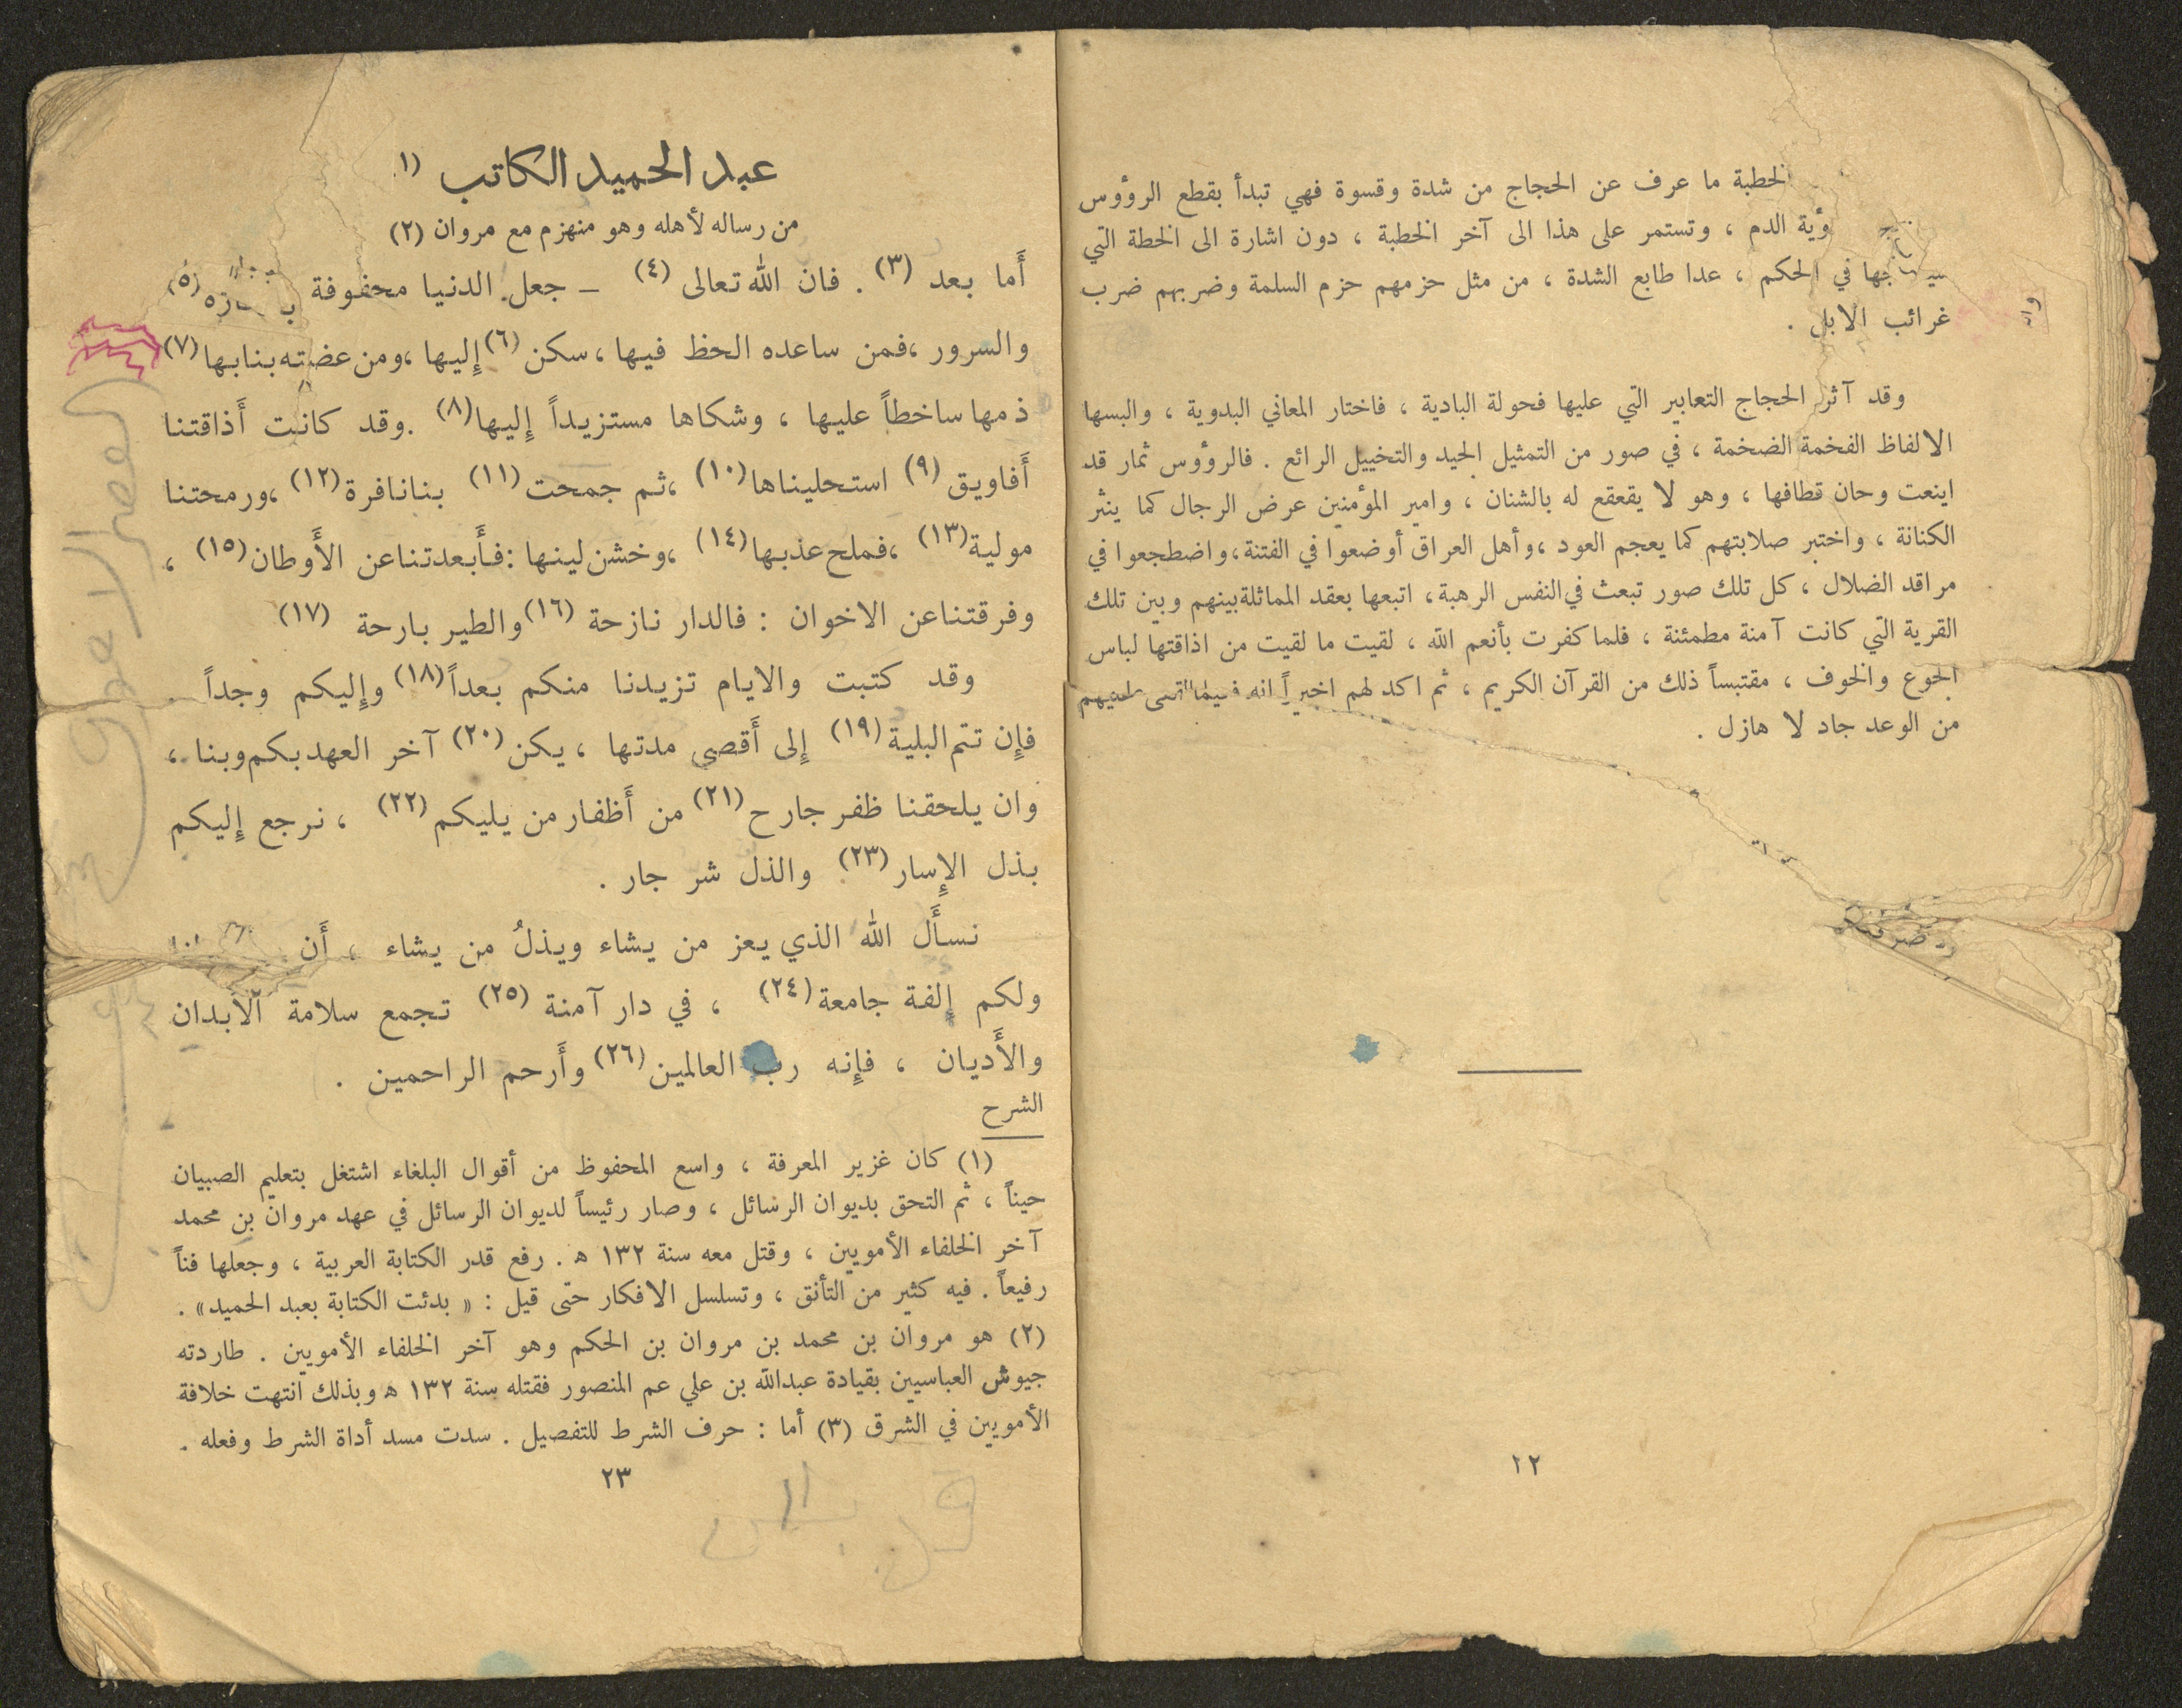 الخطبة ما عرف عن الحجاج من شدة وقسوة فهي تبدأ بقطع الرؤوس
ؤية الدم ، وتستمر على هذا الى آخر الخطبة ، دون اشارة الى الخطة التي
جها في الحكم ، عدا طابع الشدة ، من مثل حزمهم حزم السلمة وضربهم ضرب
غرائب الابل .
وقد آثر الحجاج التعابير التي عليها فحولة البادية ، فاختار المعاني البدوية ، والبسها
الالفاظ الفخمة الضخمة ، في صور من التمثيل الجيد والتخييل الرائع . فالرؤوس ثمار قد
اينعت وحان قطافها ، وهو لا يقعقع له بالشنان ، وامير المؤمنين عرض الرجال كما ينثر
الكنانة ، واختبر صلابتهم كما يعجم العود ، وأهل العراق أوضعوا في الفتنة ، واضطجعوا في
مراقد الضلال ، كل تلك صور تبعث في النفس الرهبة ، اتبعها بعقد المماثلة بينهم وبين تلك
القرية التي كانت آمنة مطمئنة ، فلما كفرت بأنعم الله ، لقيت ما لقيت من اذاقتها لباس
الجوع والخوف ، مقتبساً ذلك من القرآن الكريم ، ثم اكد لهم اخيراً انه فيما
من الوعد جاد لا هازل .
٢٢
عبد الحميد الكاتب (١)
من رساله لأهله وهو منهزم مع مروان (٢)
أَما بعد (٣) . فان الله تعالى (٤) – جعل الدنيا محفوفة (٥)
والسرور ، فمن ساعده الحظ فيها ، سكن (٦) إِليها ، ومن عضته بنابها (٧)
ذمها ساخطاً عليها ، وشكاها مستزيداً إِليها (٨) . وقد كانت أَذاقتنا
أَفاويق (٩) استحليناها (١٠) ، ثم جمحت (١١) بنا نافرة (١٢) ، ورمحتنا
مولية (١٣) ، فملح عذبها (١٤) ، وخشن لينها : فأَبعدتنا عن الأَوطان (١٥) ،
وفرقتنا عن الاخوان : فالدار نازحة (١٦) والطير بارحة (١٧)
وقد كتبت والايام تزيدنا منكم بعداً (١٨) وإِليكم وجداً
فإِن تتم البلية (١٩) إِلى أَقصى مدتها ، يكن (٢٠) آخر العهد بكم وبنا ،
وان يلحقنا ظفر جارح (٢١) من أَظفار من يليكم (٢٢) ، نرجع إِليكم
بذل الإِسار (٢٣) والذل شر جار .
نسأَل الله الذي يعز من يشاء ويذلُ من يشاء ، أَن
ولكم إِلفة جامعة (٢٤) ، في دار آمنة (٢٥) تجمع سلامة الأبدان
والأَديان ، فإِنه رب العالمين (٢٦) وأَرحم الراحمين .
الشرح
(١) كان غزير المعرفة ، واسع المحفوظ من أقوال البلغاء اشتغل بتعليم الصبيان
حيناً ، ثم التحق بديوان الرسائل ، وصار رئيساً لديوان الرسائل في عهد مروان بن محمد
آخر الخلفاء الأمويين ، وقتل معه سنة ١٣٢ ه . رفع قدر الكتابة العربية ، وجعلها فناً
رفيعاً . فيه كثير من التأنق ، وتسلسل الافكار حتى قيل : « بدئت الكتابة بعبد الحميد » .
(٢) هو مروان بن محمد بن مروان بن الحكم وهو آخر الخلفاء الأمويين . طاردته
جيوش العباسيين بقيادة عبدالله بن علي عم المنصور فقتله سنة ١٣٢ ه وبذلك انتهت خلافة
الأمويين في الشرق (٣) أما : حرف الشرط للتفصيل . سدت مسد أداة الشرط وفعله .
٢٣